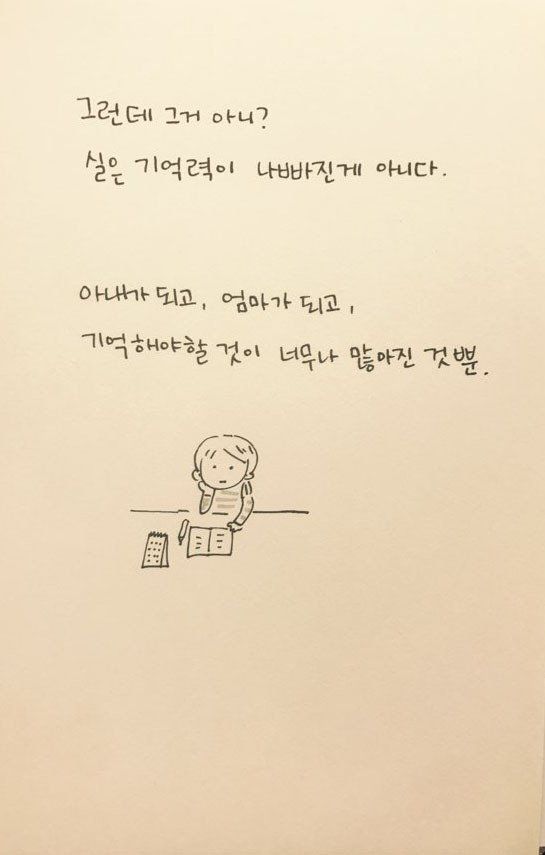 그런데 그거 아니?
실은 기억력이 나빠진게 아니다.
아내가 되고, 엄마가 되고,
기억해야할 것이 너무나 많아진 것뿐.